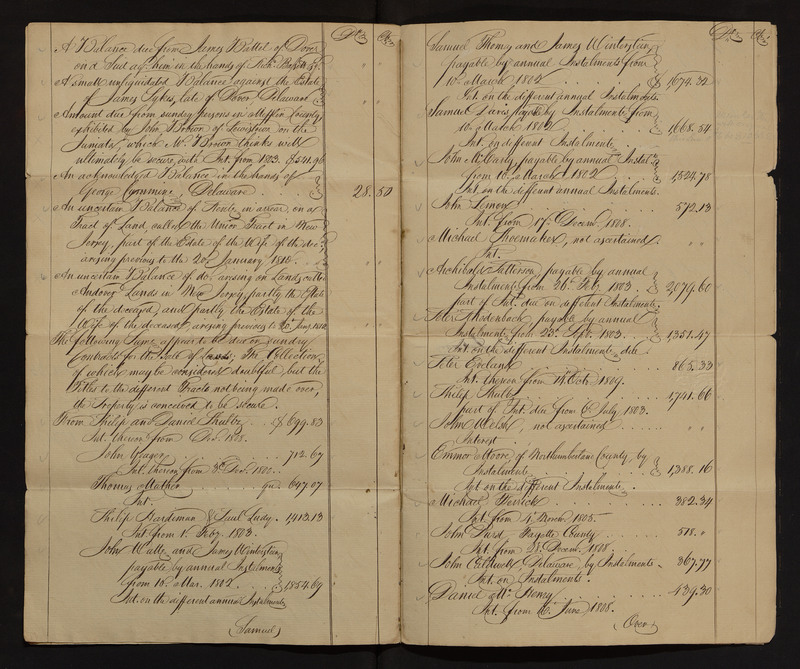 Dls Cts
A Balance due from James Battel of Dover
on a Suit agt. him in the hands of Richd.
A small unliquidated Balance against the Estate
of James Sykes, late of Dover Delaware
Amount due from sundry Persons in Mifflin County
exhibited by John Brown of Lewistown on the
Juniata, which Mr. Brown thinks will
ultimately be secure, with Int. from 1803. $541.96
An acknowledged Balance in the hands of
George Cummins, Delaware 28.50
An uncertain Balance of Rents in arrear on a
Tract of Land, called the Union Tract in New
Jersey, part of the Estate of the Wife of the dec
arising previous to the 20th January 1810
An uncertain Balance of do. arising on Lands, called
Andover Lands in New Jersey partly the Estate
of the deceased, and partly the Estate of the
Wife of the deceased, arising previous to 20th Jany. 1810
The following Sums appear to be due on sundry
Contracts for the Sale of Lands; The Collection
of which may be considered doubtful, but the
Titles to the different Tracts not being made over,
the Property is conceived to be secure.
From Philip and Daniel Shultze $699.83
Int. thereon from Dec. 1808.
John Yeager 712.67
Int. thereon from 3d. Dec. 180
Thomas Mather 647.07
Int.
Philip Hardeman & Saul Ludy 1,413.13
Int. from 1. Feby. 1803.
John Walls and James Winterstein
payable by annual Instalments
from 10. Mar. 1802 $1854.69
Int. on the different annual Instalments
Samuel
Dls Cts
Samuel Thomas and James Winterstein
payable by annual Instalments from
10th March 1802 $1,674.32
Int. on the different annual Instalments
Samuel Davis payable by Instalments from
10th March 1802 1,668.54
Int. on different Instalments
John McCarty payable by annual Instalts.
from 10th March 1802 1,524.78
Int. on the different annual Instalments.
John Lemon 572.13
Int. from 17th Decem. 1808.
Michael Shoemaker, not ascertained " "
Int.
Archibald Patterson, payable by annual
Instalments from 26th Feb. 1803. 2,079.60
part of Int. due on different Instalments.
Peter Rhodenbach, payable by annual
Instalments from 23d. Sept. 1803. 1,351.47
Int. on the different Instalments due
Peter Eveland 865.33
Int. thereon from 14 Octr. 1809.
Philip Shultz 1,741.66
part of Int. due from 6th July 1803.
John Welsh, not ascertained " "
Interest
Emmor Moore of Northumberland County, by
Instalments 1,388.16
Int. on the different Instalments.
Michael 382.34
Int. from 4th Novem. 1805.
John Fayette County 578. "
Int. from 28. Decem. 1808.
John Caldwell, Delaware, by Instalments 367.77
Int. on Instalments.
Daniel McHenry 439.30
Int. from 16th June 1808.
Over